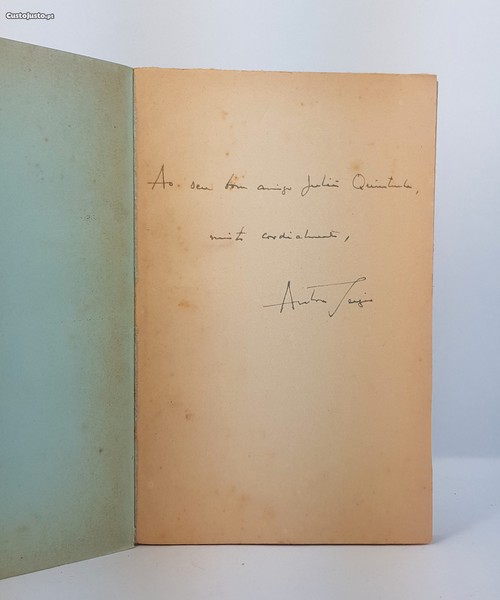 CustoJusto.pt
Ao seu bom amigo Julião Quintinha,
muito cordialmente,
António Sérgio